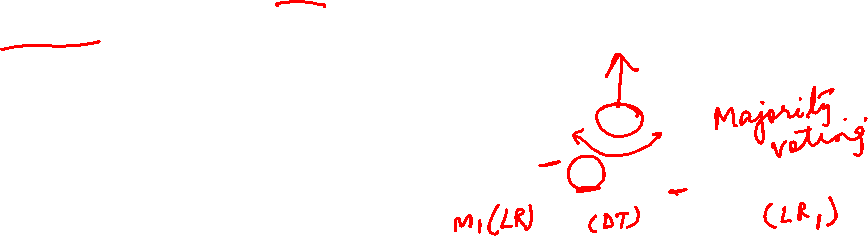 Majority
voting
M1(LR) (DT) (LR1)